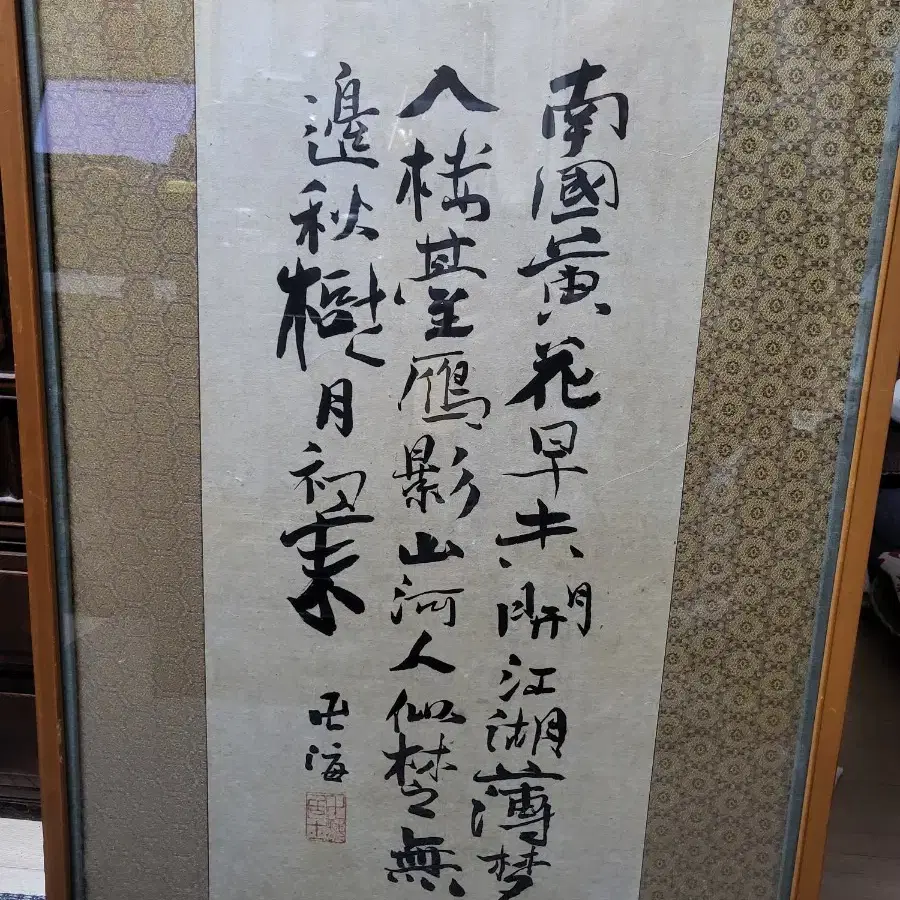 南國黃花早未開江湖薄梦
入樓臺鴈影山河人似楚無
邊秋樹月初來
卍海